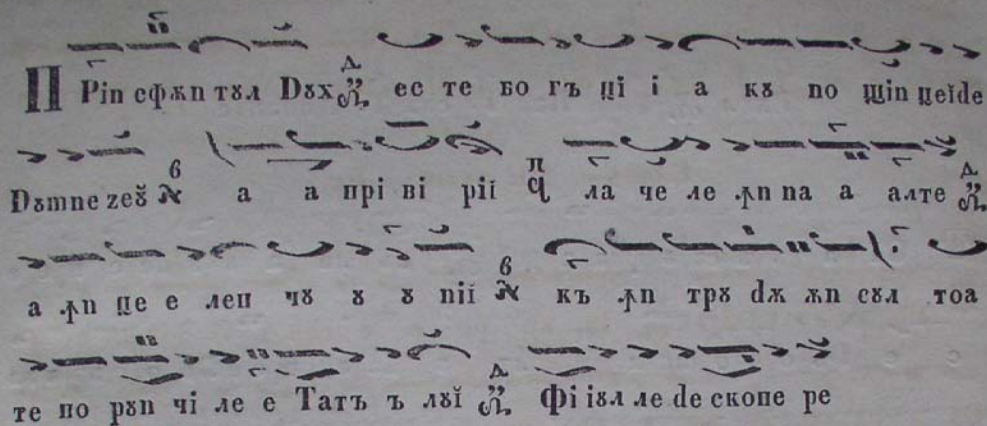 Пꙋin сфѫn тꙋл Dꙋх есте богъ ціі а кꙋ no щіn цеĭde
Dꙋmne zeꙋ̆ а а прі ві ріĭ ла че ле ꙟn па а алте
а ꙟn це е леп чꙋ ꙋ ꙋ nіĭ къ ꙟn трꙋ dѫ ѫn сꙋл тоа
те по рꙋn чі ле е Татъ ъ лꙋĭ Фі іꙋл ле de скопе ре